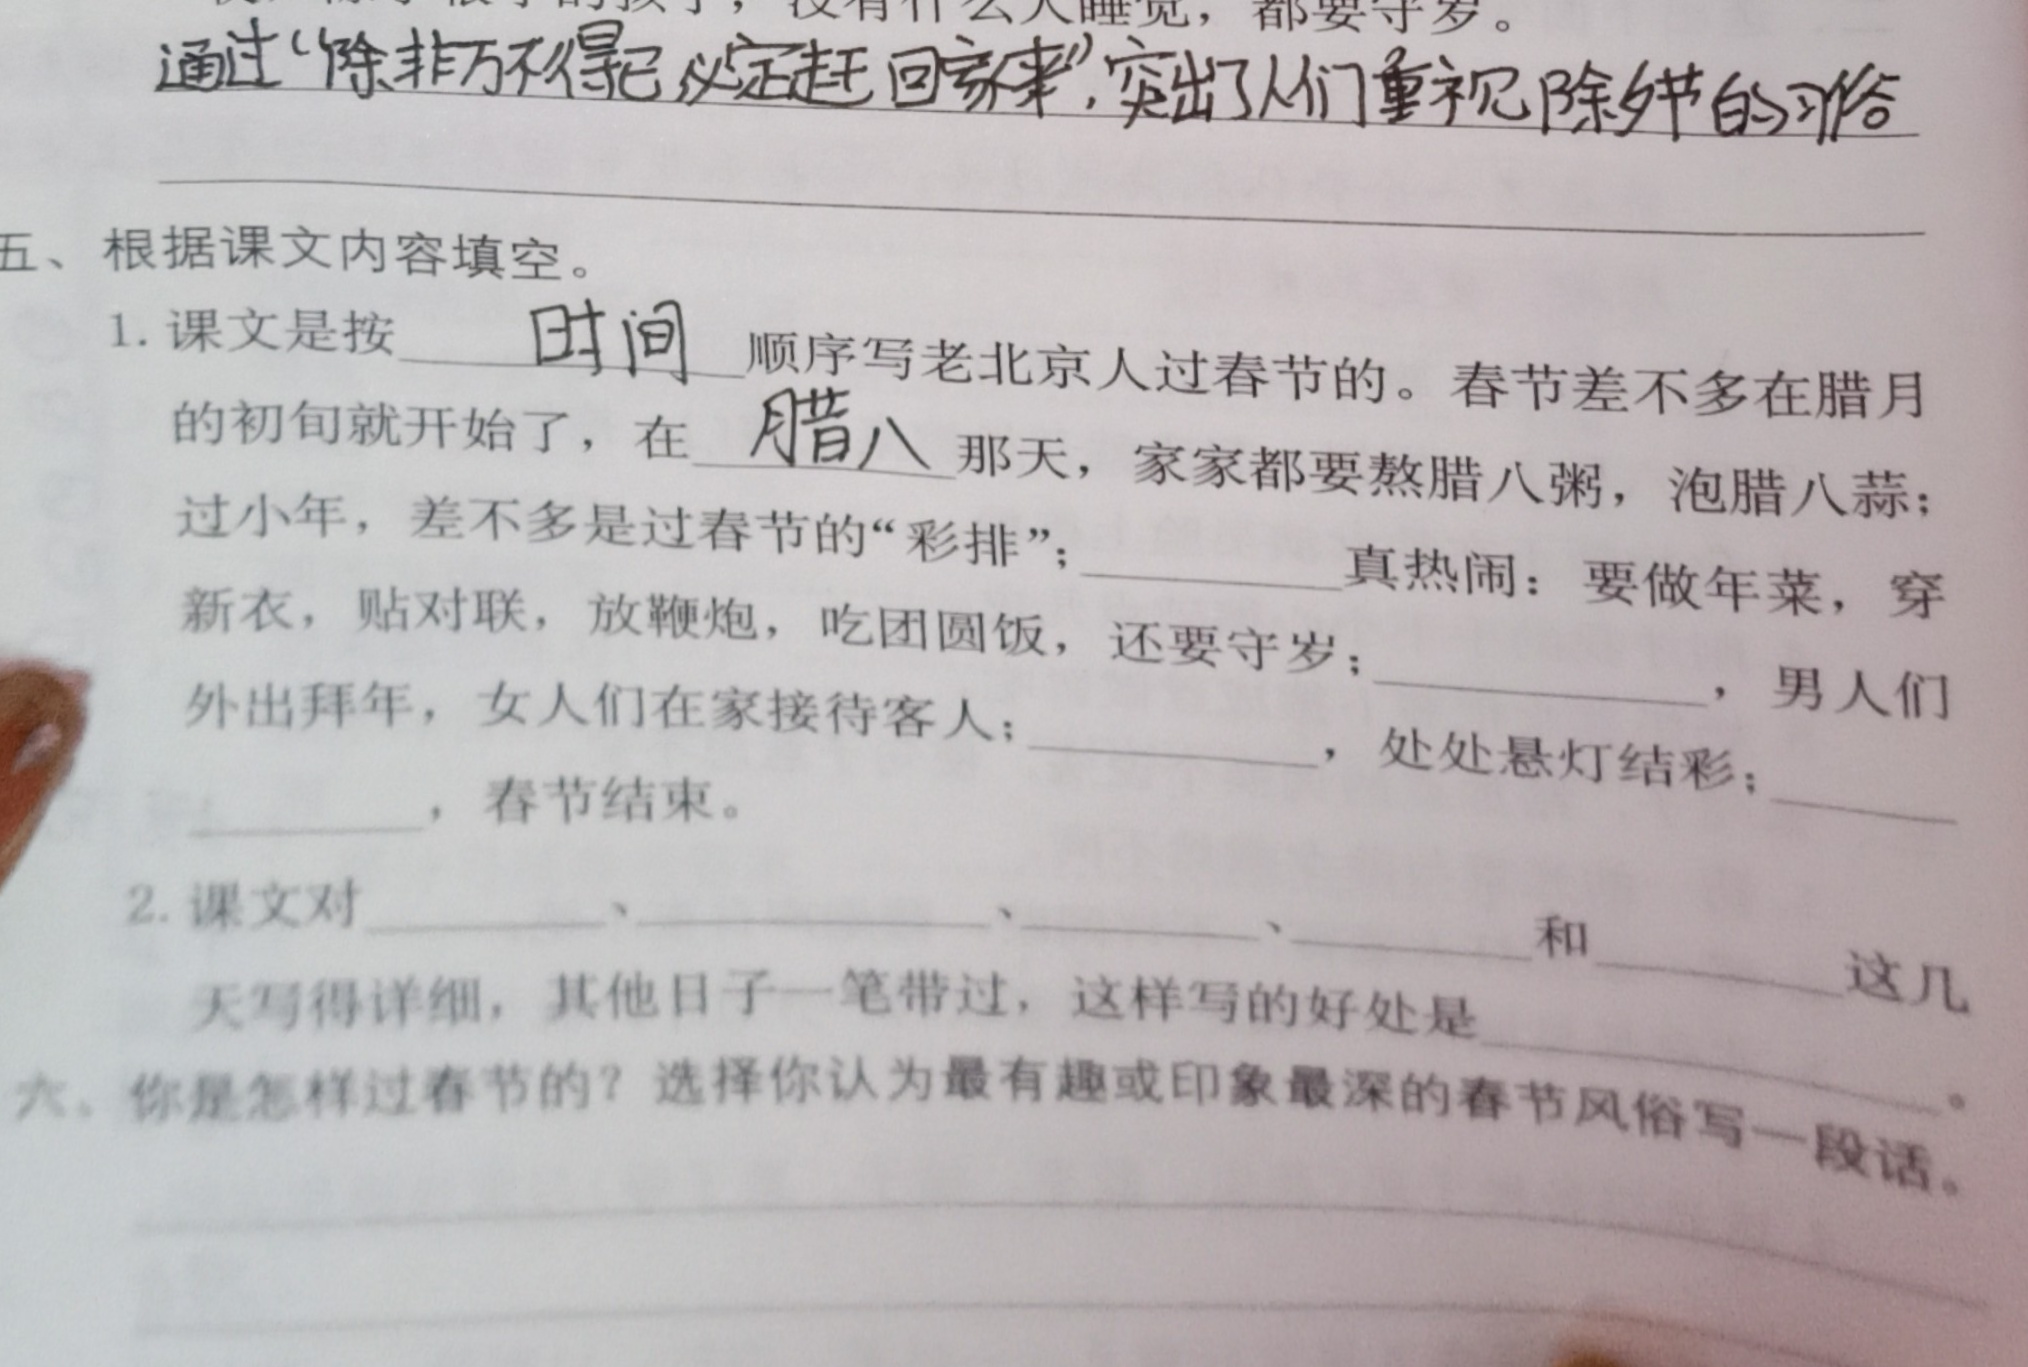 没有什么人睡觉，都要守岁。
通过“除非万不得已必定赶回家来”，突出了人们重视除夕节的习俗
五、根据课文内容填空。
1. 课文是按 时间 顺序写老北京人过春节的。春节差不多在腊月
的初旬就开始了，在 腊八 那天，家家都要熬腊八粥，泡腊八蒜；
过小年，差不多是过春节的“彩排”；________真热闹：要做年菜，穿
新衣，贴对联，放鞭炮，吃团圆饭，还要守岁；________，男人们
外出拜年，女人们在家接待客人；________，处处悬灯结彩；____
________，春节结束。
2. 课文对________、________、________、________和________这几
天写得详细，其他日子一笔带过，这样写的好处是________
________。
六、你是怎样过春节的？选择你认为最有趣或印象最深的春节风俗写一段话。